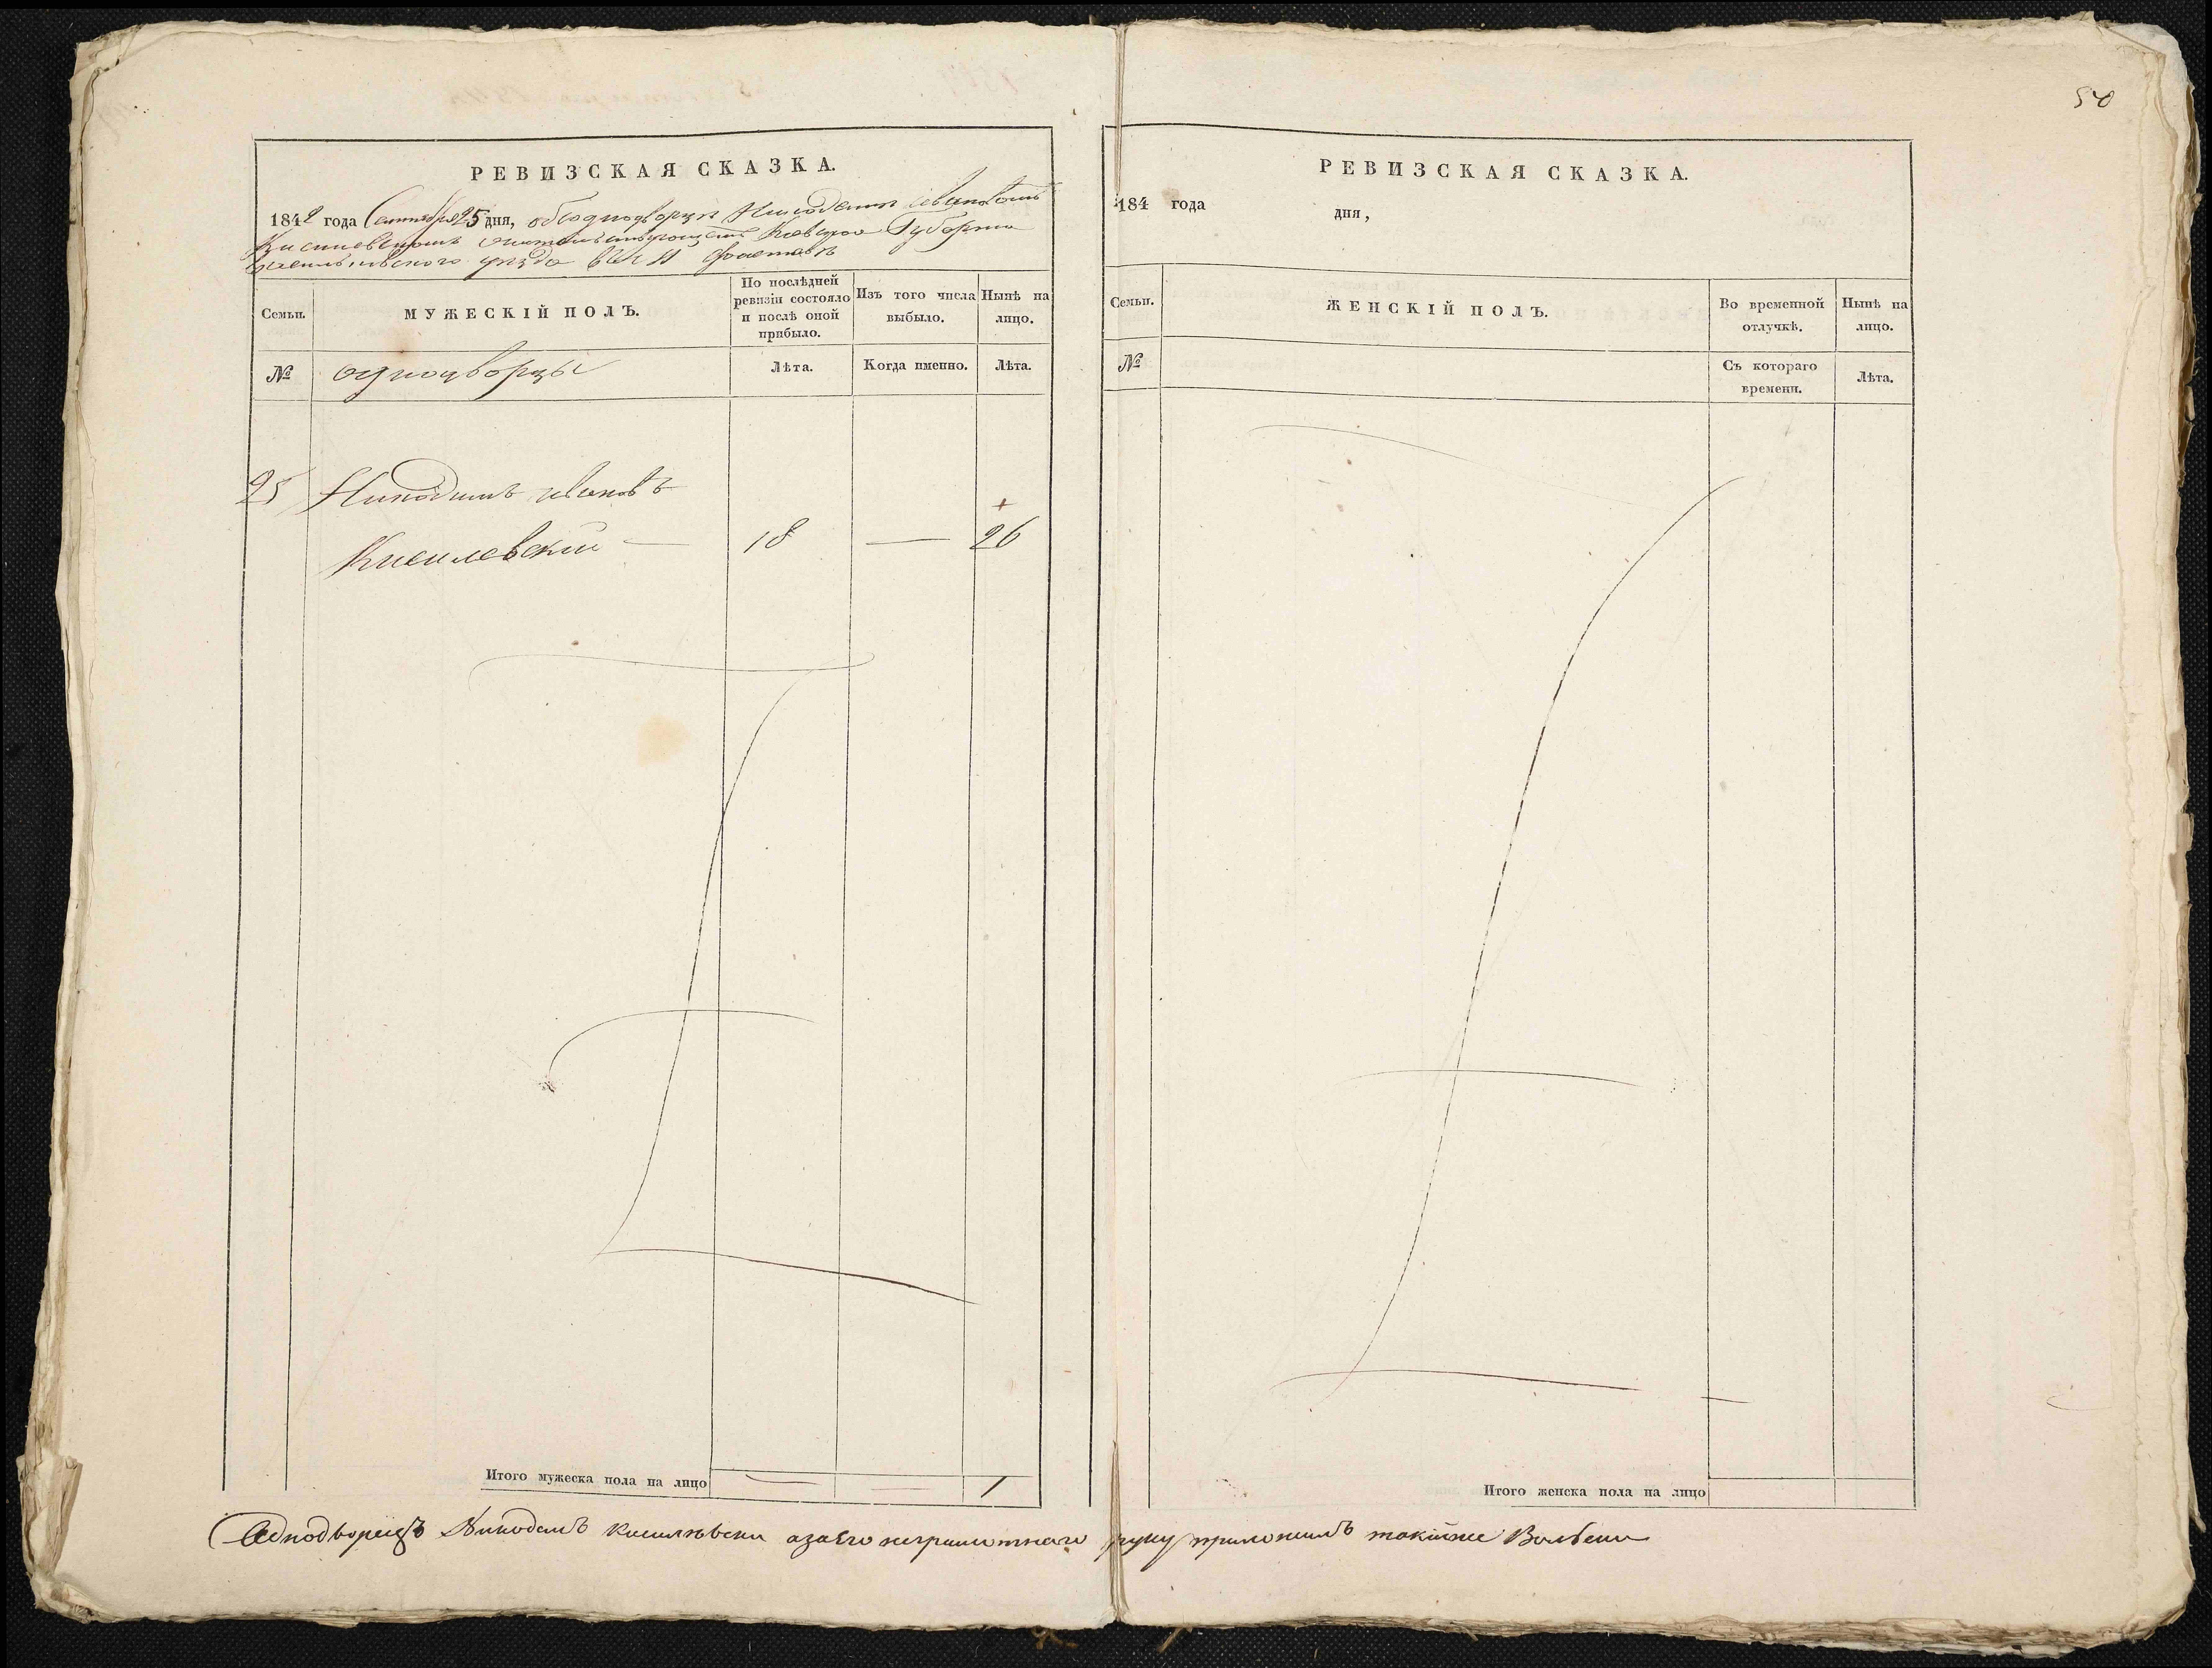 50
РЕВИЗСКАЯ СКАЗКА.
1842 года Сентября 25 дня, объ однодворцѣ Никодимѣ Ивановѣ
Киевской Губерніи
уѣзда
Семьи.
МУЖЕСКІЙ ПОЛЪ.
По послѣдней ревизіи состояло и послѣ оной прибыло.
Изъ того числа выбыло.
Нынѣ на лицо.
№
однодворцы
Лѣта.
Когда именно.
Лѣта.
25 Никодимъ Ивановъ
Кисилевскій — 18 — 26
Итого мужеска пола на лицо — — 1
РЕВИЗСКАЯ СКАЗКА.
184 года дня,
Семьи.
ЖЕНСКІЙ ПОЛЪ.
Во временной отлучкѣ.
Нынѣ на лицо.
№
Съ котораго времени.
Лѣта.
Итого женска пола на лицо
Однодворецъ Никодемъ Кисилѣвски азаего неграмотнаго руку приложилъ такійже